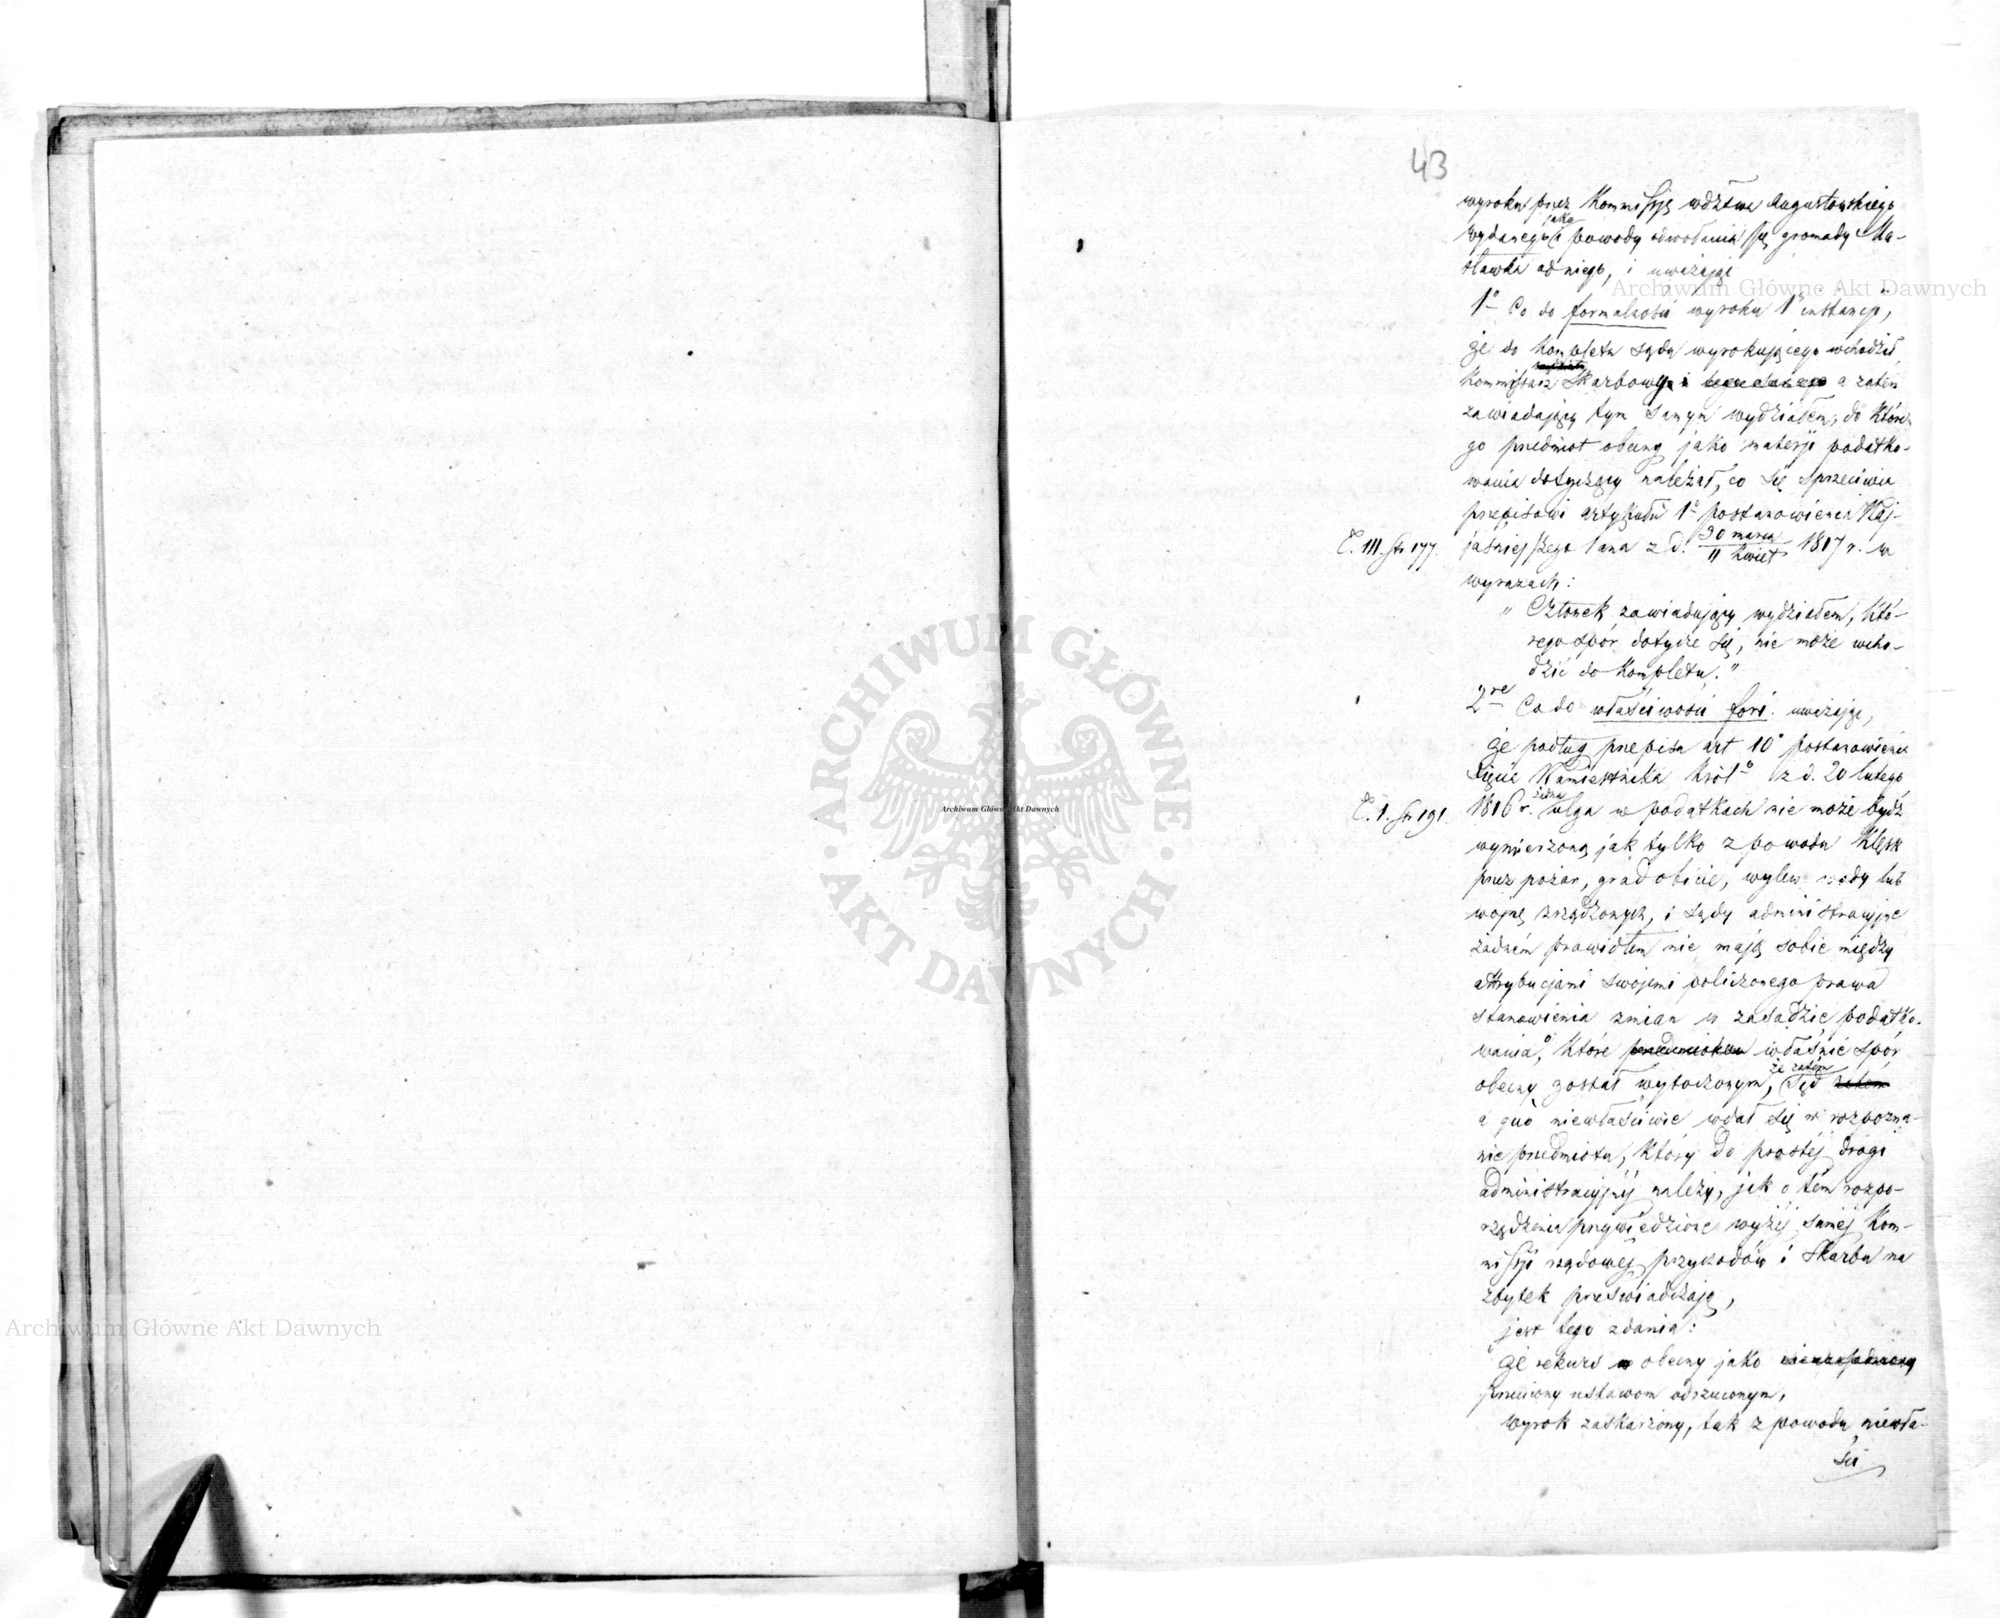 43
wyroku przez Kommissyę wdztwa Augustowskiego
wydanego jako powody odwołania się gromady Ma-
sławka od niego, i uważając
1° Co do formalności wyroku 1ej instancji,
że do kompletu sądu wyrokującego wchodził
Kommissarz Skarbowy a zatem
zawiadający tym samym wydziałem, do które-
go przedmiot obecny jako materji podatko-
wania dotyczący należał, co się sprzeciwia
przepisowi artykułu 1° postanowienia Naj-
T. III. str 177. jaśniejszego Pana z d. 30 marca / 11 Kwiet 1817 r. w
wyrazach:
„Członek zawiadujący wydziałem, któ-
rego spór dotycze się, nie może wcho-
dzić do kompletu."
2re Co do właściwości fori. uważając,
że podług przepisu art 10° postanowienia
Xięcia Namiestnika Król° z d. 20 lutego
T. I. str 191. 1816 r. żadna ulga w podatkach nie może bydź
wymierzoną jak tylko z powodu klęsk
przez pożar, gradobicie, wylew wody lub
wojnę zrządzonych, i sądy administracyjne
żadném prawidłem nie mają sobie między
attrybucjami swojemi policzonego prawa
stanowienia zmian w zasadzie podatko-
wania, o które przedmiotem właśnie spór
obecny został wytoczonym, że zatem Sąd zatem
a quo niewłaściwie wdał się w rozpozna-
nie przedmiotu, który do prostéj drogi
administracyjnéj należy, jak o tém rozpo-
rządzenia przywiedzione wyżéj saméj Kom-
missji rządowéj przychodów i Skarbu na
zbytek przeświadczają,
jest tego zdania:
Że rekurs obecny jako nieuzasadniony
przeciwny ustawom odrzuconym,
Wyrok zaskarżony, tak z powodu niewła-
ści
Archiwum Główne Akt Dawnych
Archiwum Główne Akt Dawnych
Archiwum Główne Akt Dawnych
ARCHIWUM GŁÓWNE · AKT DAWNYCH ·